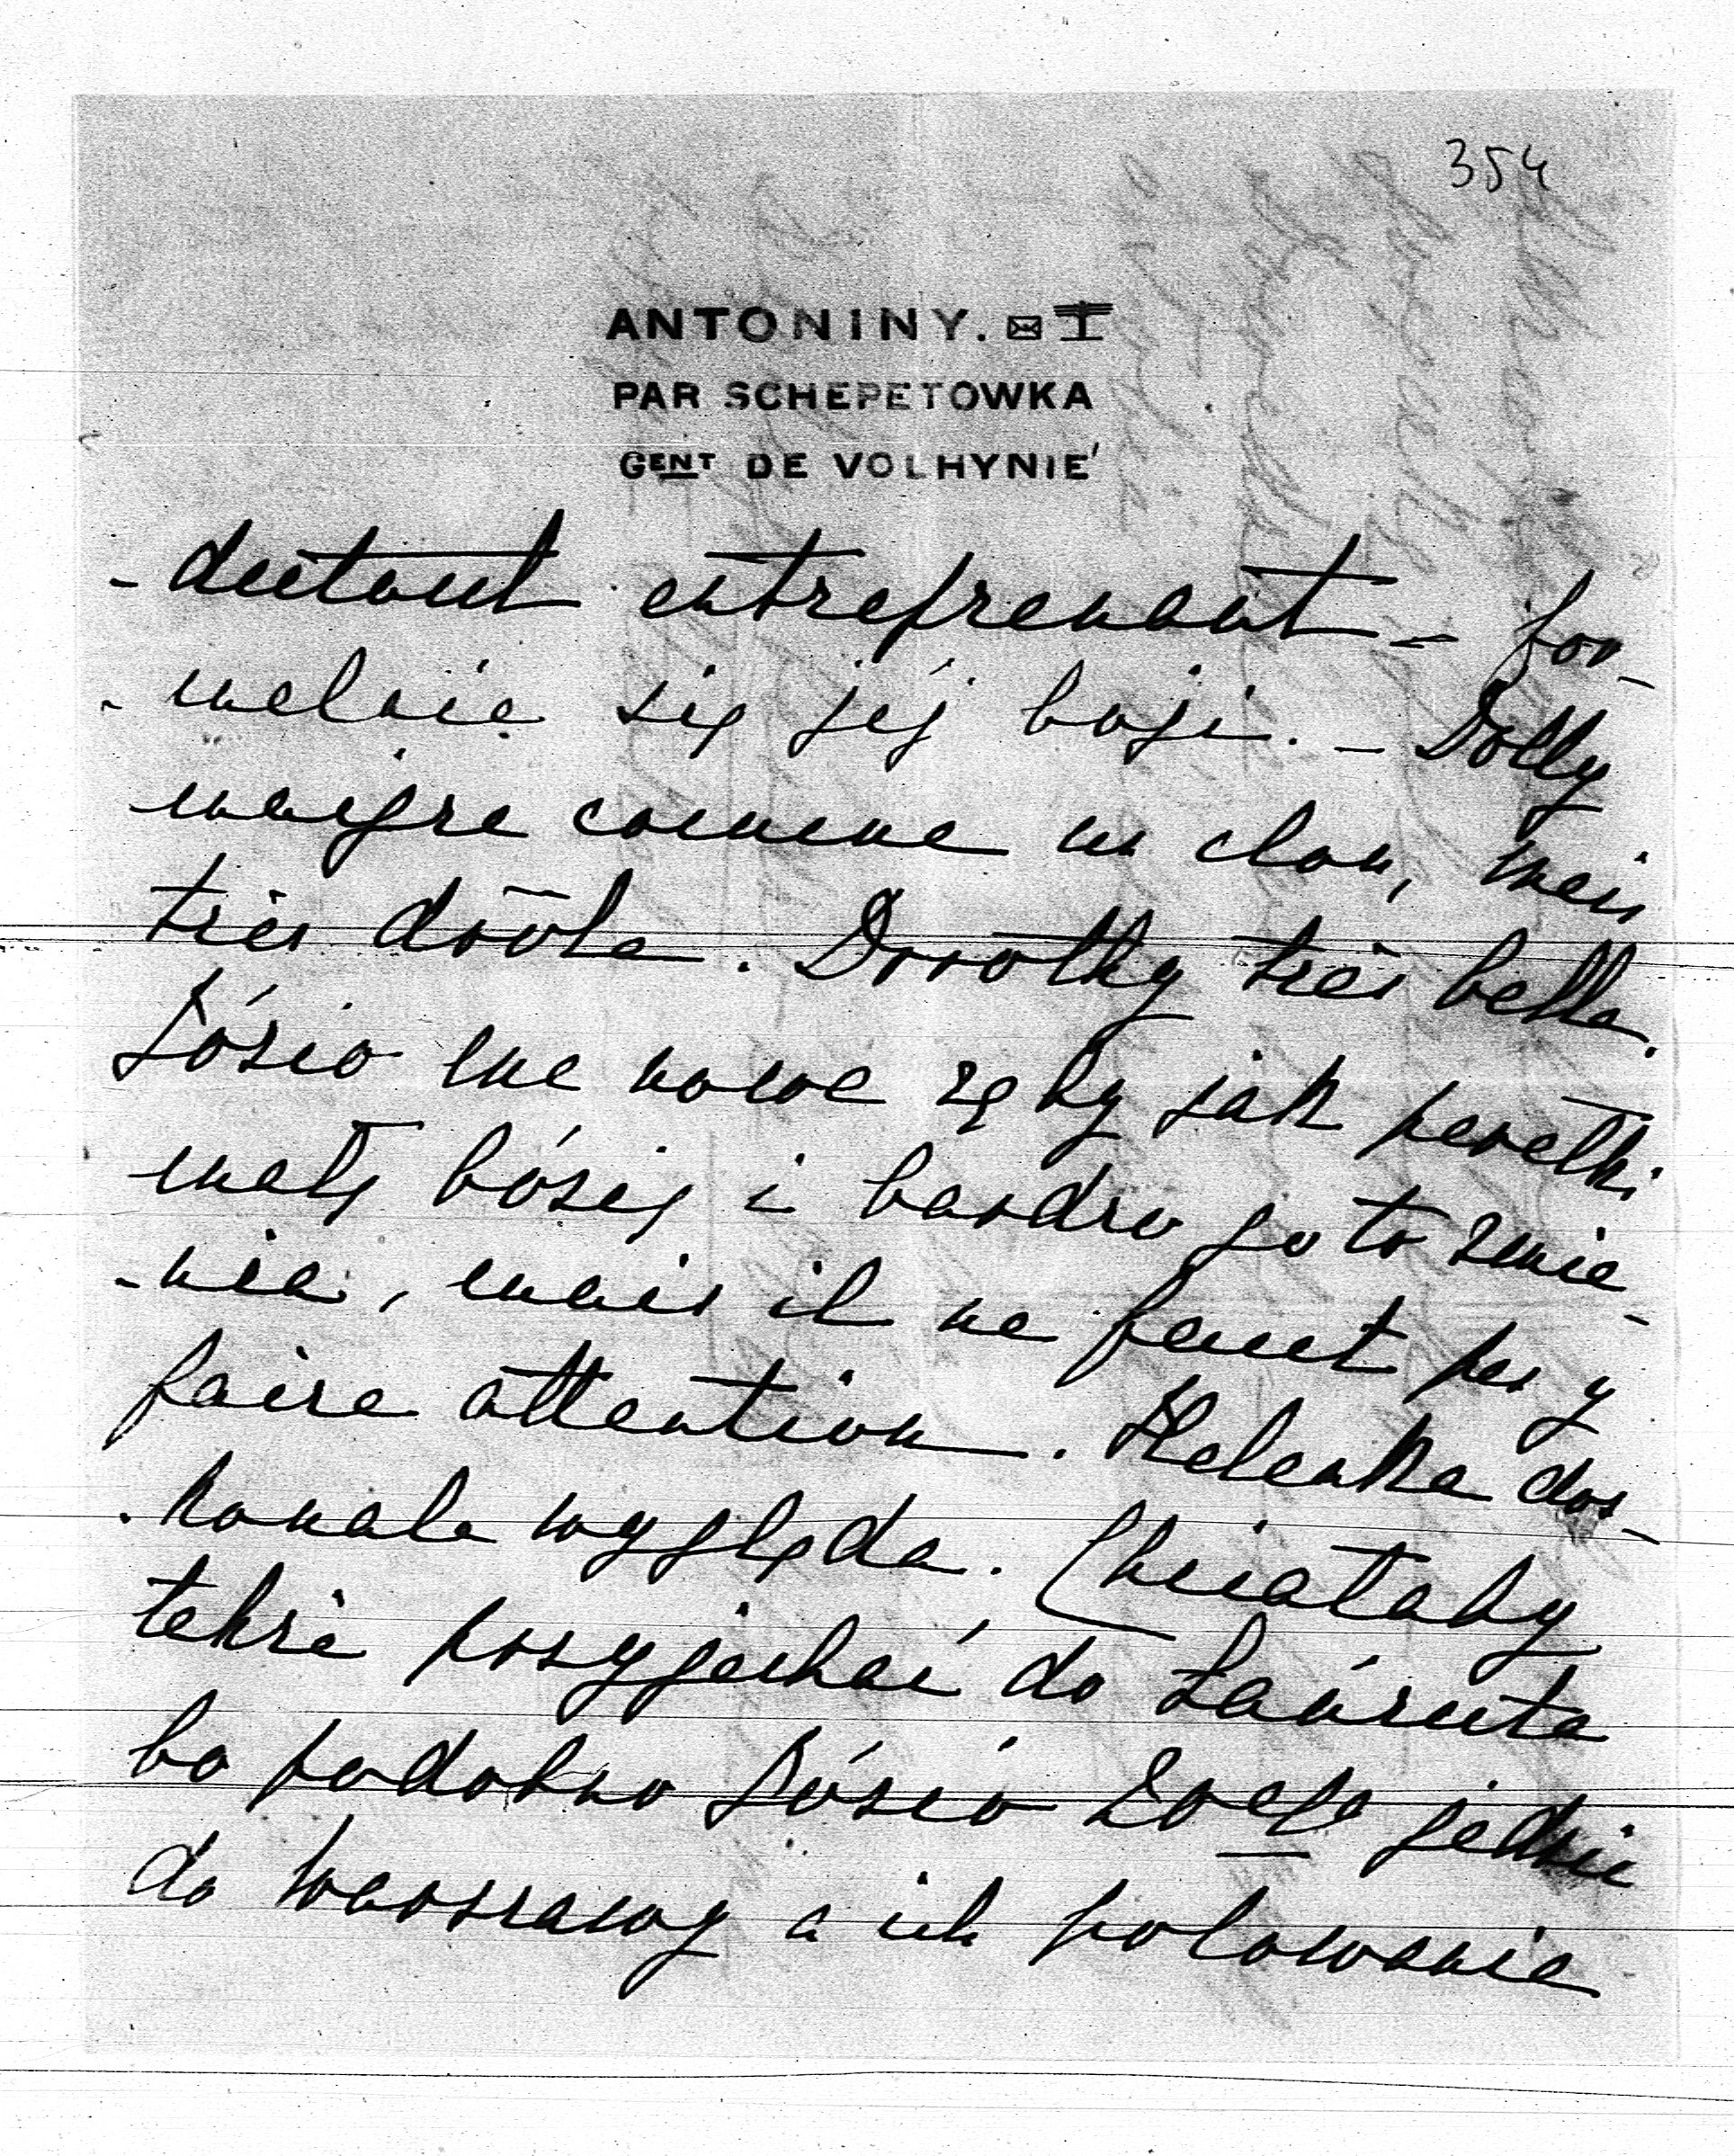 354
ANTONINY.
PAR SCHEPETOWKA
GENT DE VOLHYNIE
-dutout entreprenant - for-
-malnie się jéj boji. - Dolly
maigre comme un clou, mais
très drôle. Dorothy très belle.
Józio ma nowe zęby jak perełki
małą buzię i bardzo go to zmie-
-nia, mais il ne faut pas y
faire attention. Helenka dos-
-konale wygląda. Chciałaby
także przyjechać do Łańcuta
bo podobno Józio jedzie
do Warszawy a ich polowanie